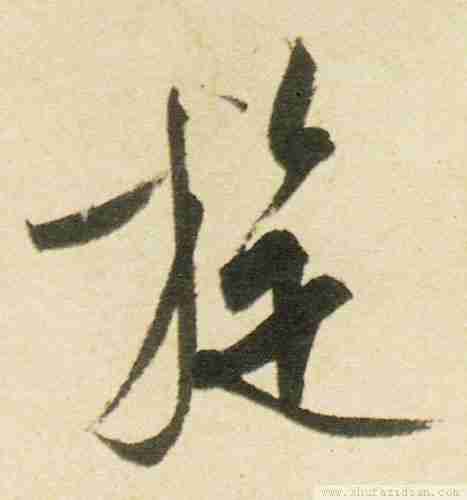 旋
www.shufazidian.com